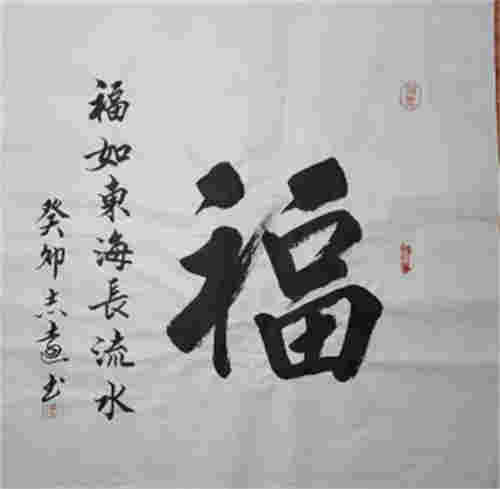 福
福如東海長流水
癸卯志遠书